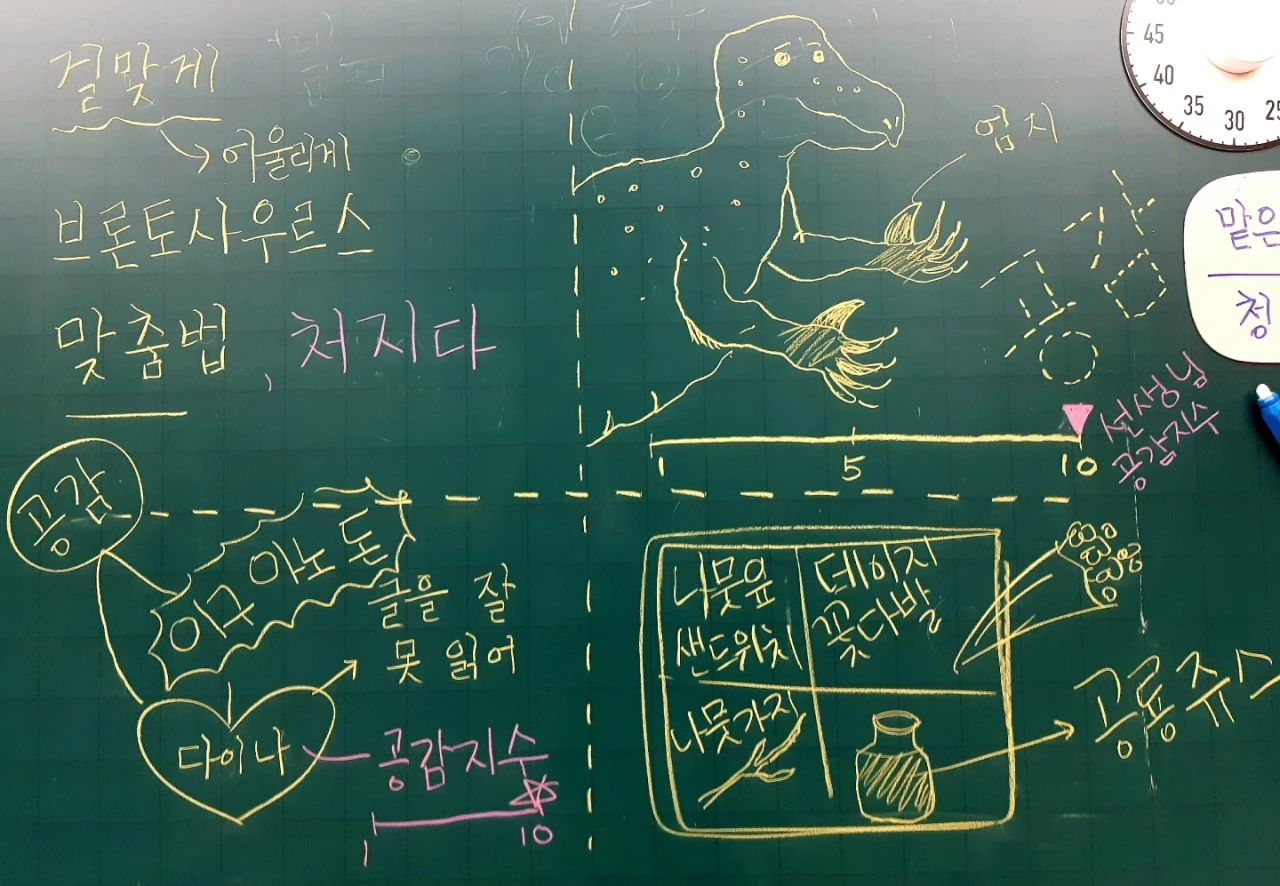 걸맞게
어울리게
브론토사우르스
맞춤법, 처지다
엄지
공룡
1 5 10
선생님
공감지수
공감
이구아노돈
글을 잘
못 읽어
다이나
공감지수
1 10
나뭇잎
샌드위치
데이지
꽃다발
나뭇가지
공룡쥬스
45
40
35
30
25
맡은
청